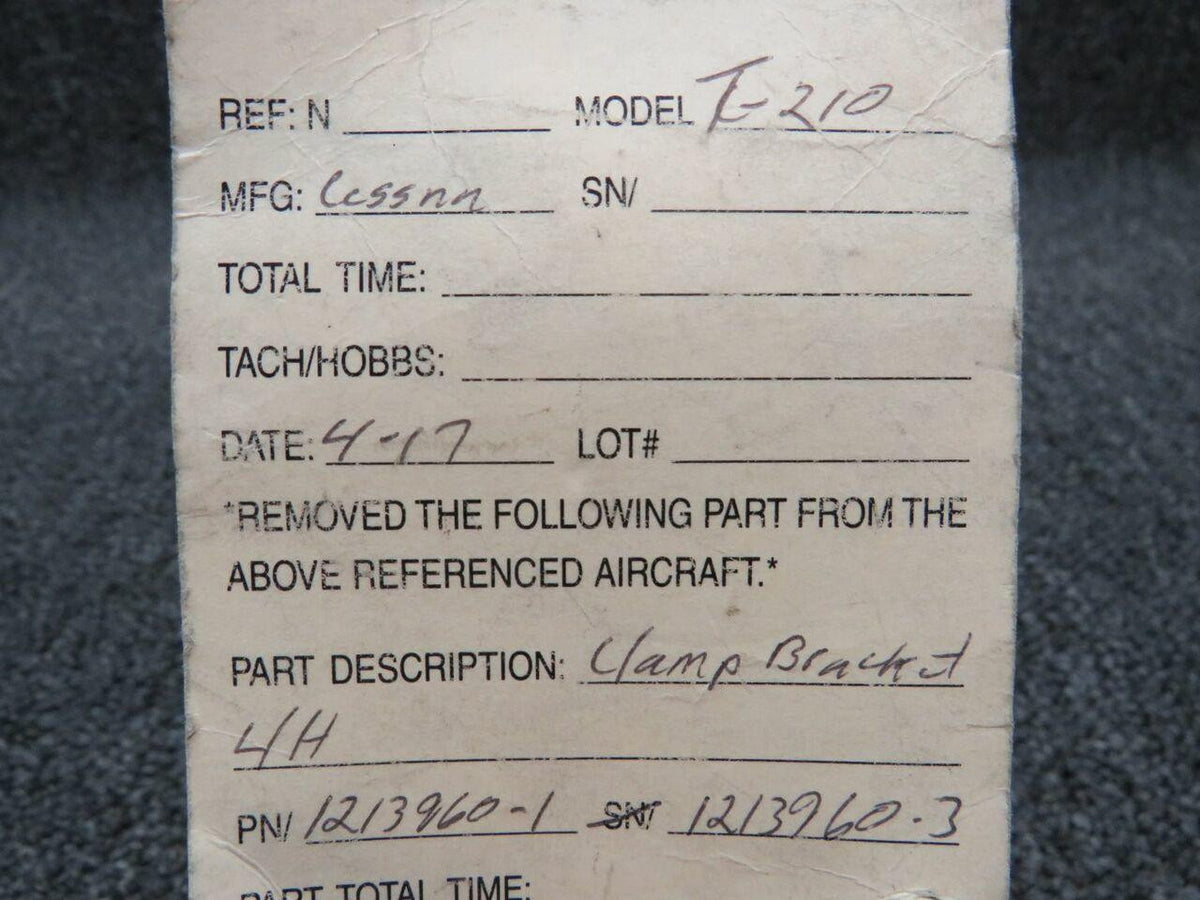 REF: N MODEL T-210
MFG: Cessna SN/
TOTAL TIME:
TACH/HOBBS:
DATE: 4-17 LOT#
*REMOVED THE FOLLOWING PART FROM THE
ABOVE REFERENCED AIRCRAFT.*
PART DESCRIPTION: Clamp Bracket
L/H
PN/ 1213960-1 SN/ 1213960-3
PART TOTAL TIME: